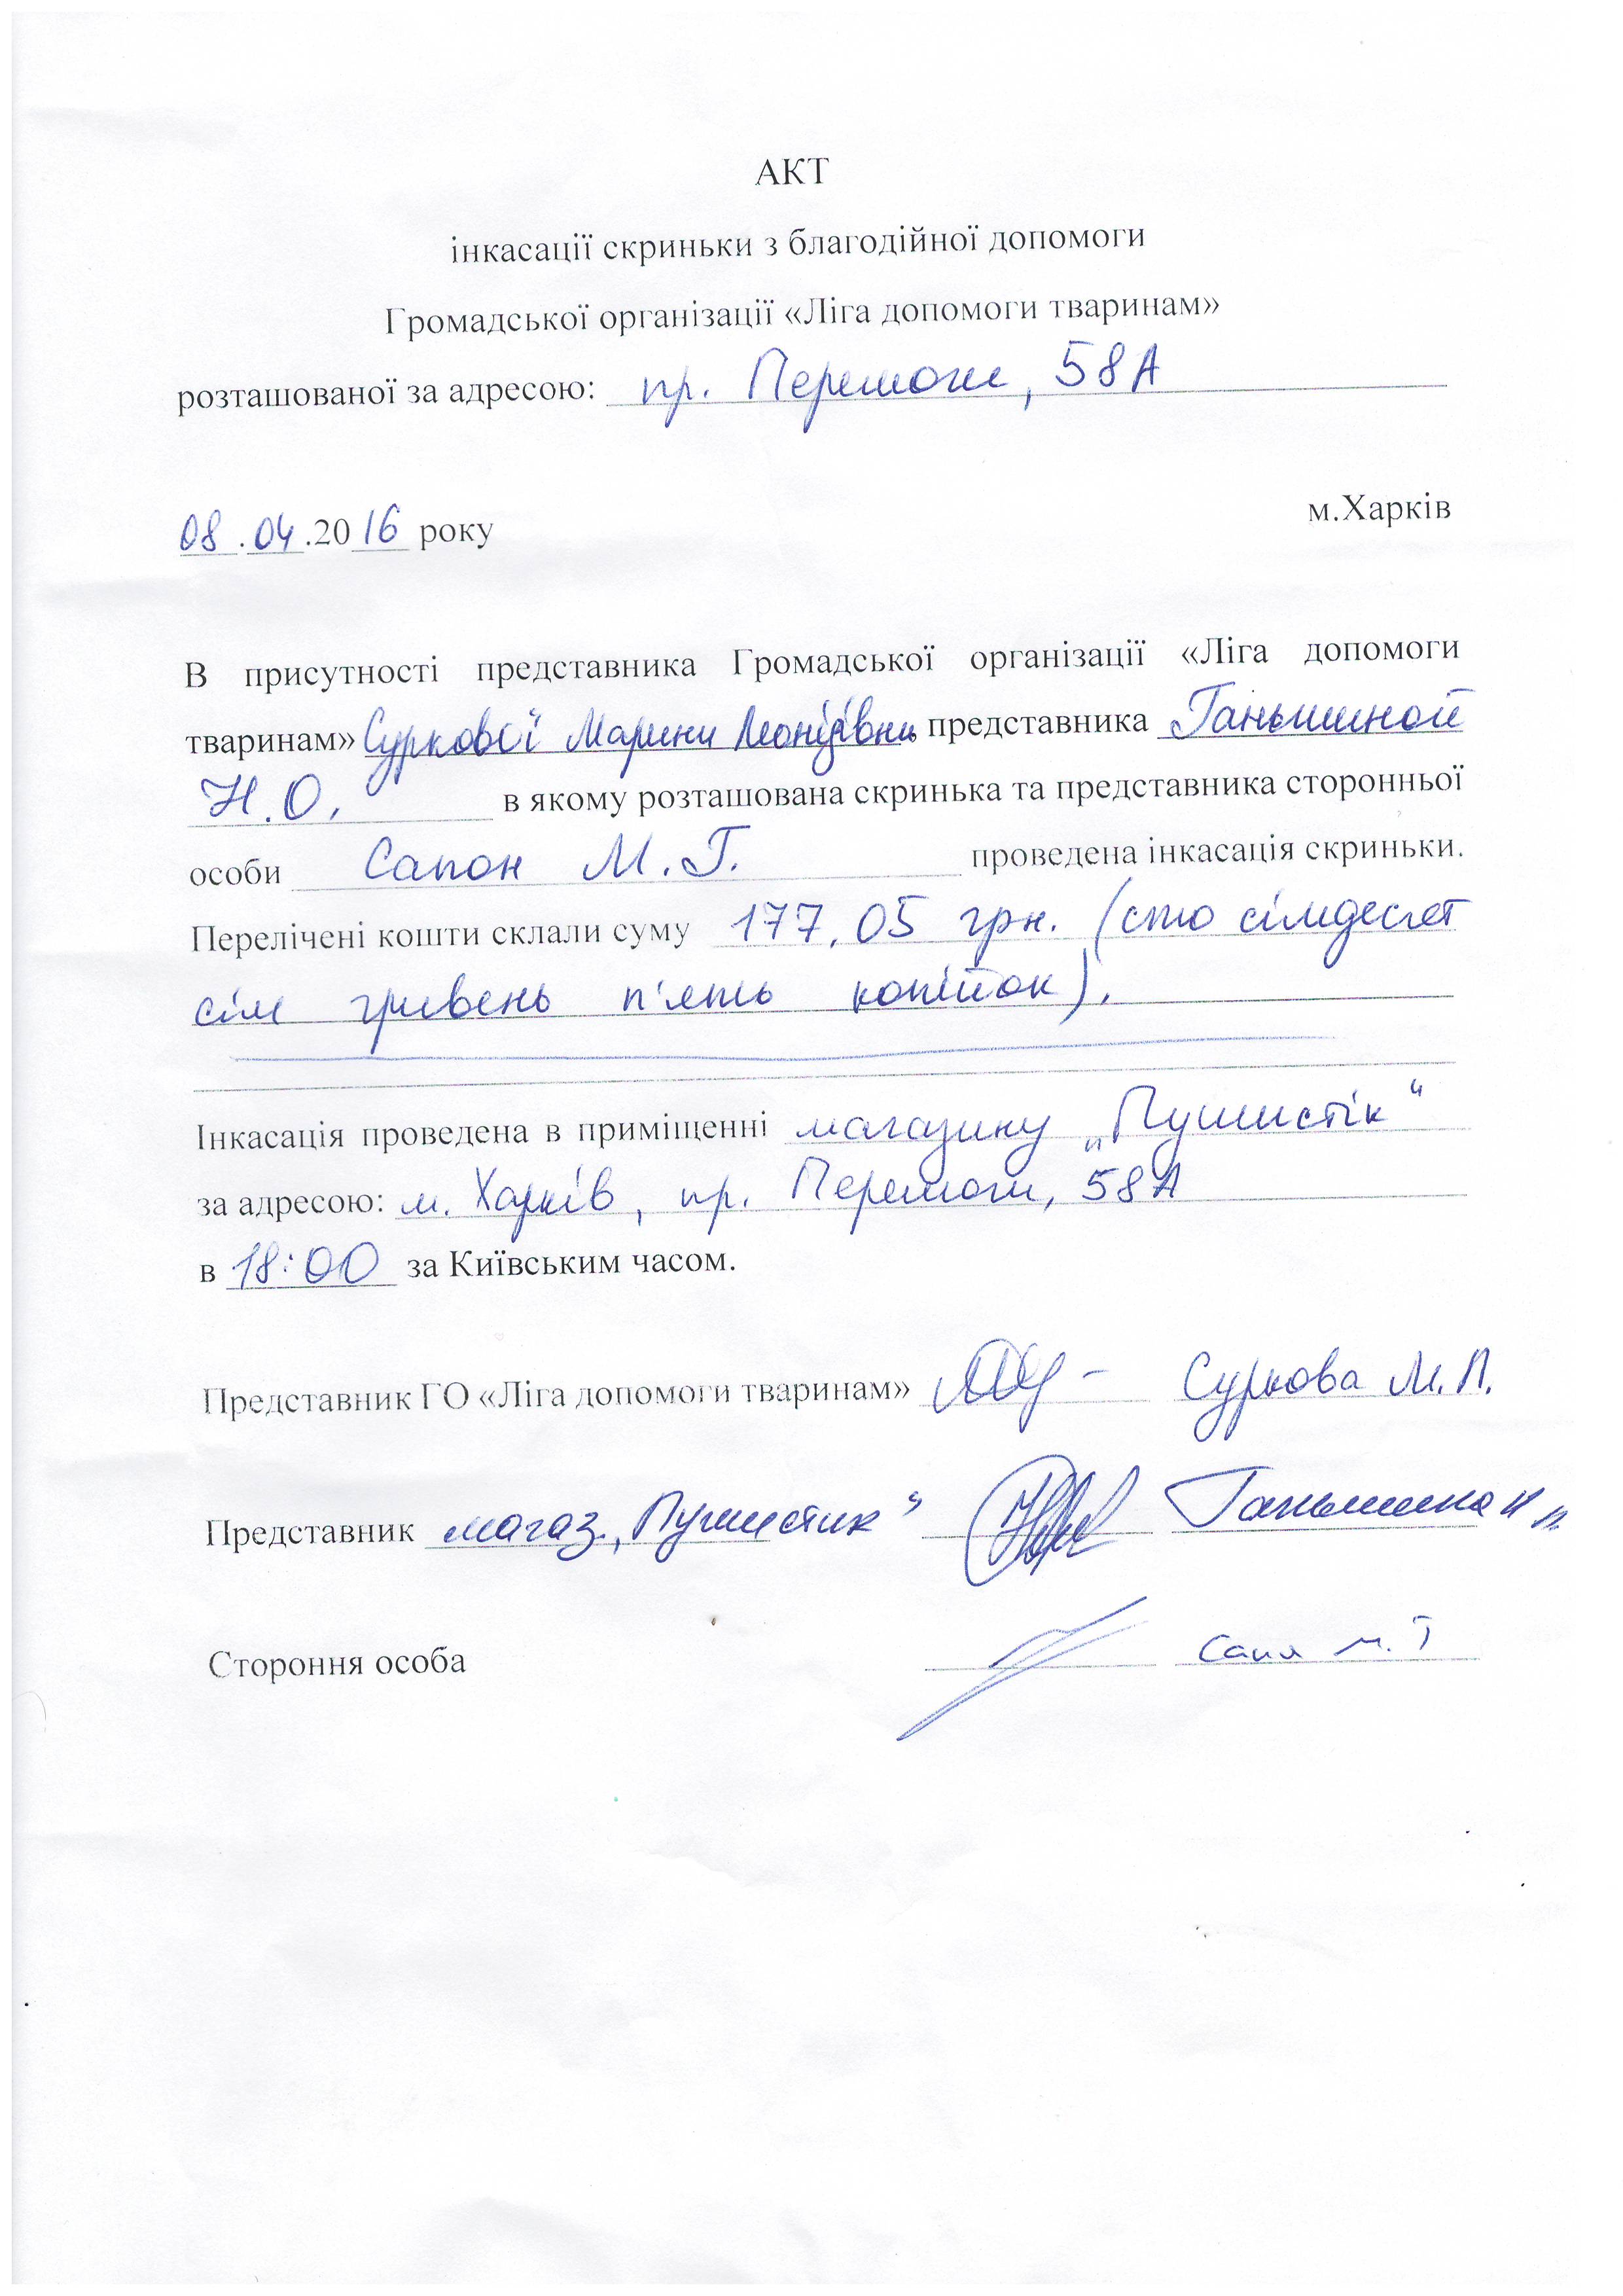 АКТ
інкасації скриньки з благодійної допомоги
Громадської організації «Ліга допомоги тваринам»
розташованої за адресою: пр. Перемоги, 58А
08.04.2016 року м.Харків
В присутності представника Громадської організації «Ліга допомоги
тваринам» Суркової Марини Леонідівни представника Ганьшиной
Н.О. в якому розташована скринька та представника сторонньої
особи Сапон М.Г. проведена інкасація скриньки.
Перелічені кошти склали суму 177,05 грн. (сто сімдесят
сім гривень п'ять копійок).
Інкасація проведена в приміщенні магазину „Пушистік"
за адресою: м. Харків, пр. Перемоги, 58А
в 18:00 за Київським часом.
Представник ГО «Ліга допомоги тваринам» Суркова М.Л.
Представник магаз. „Пушистик" Ганьшина
Стороння особа М. Г